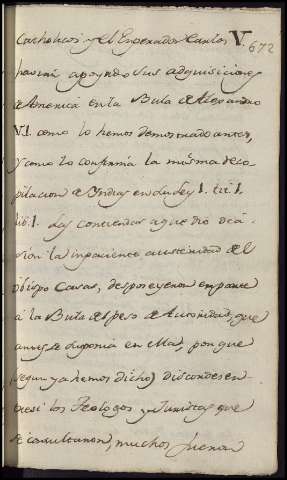 Catholicos y el Emperador Carlos V.
672
havian apoyado sus adquisiciones
de America en la Bula de Alexandro
VI. como lo hemos demostrado antes,
y como lo confirma la misma Reco-
pilacion de Yndias en la Ley 1. tit. 1.
lib. 1. Las contiendas a que dio oca-
sion la impaciente austeridad del
obispo Casas, desposeyeron en parte
á la Bula del peso de Autoridad, que
antes se suponia en ella, porque
segun ya hemos dicho, discordes en-
tre si los Teologos y Juristas que
se consultaron, muchos fueron